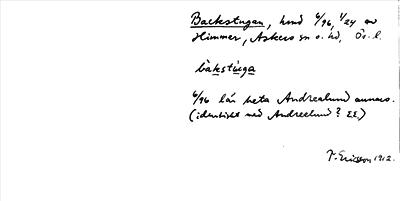 Backstugan, hmd 6/96, 1/24 av
Himmer, Askers sn o. hd, Ör. l.
bàkstùga
6/96 lär heta Andreelund annars.
(identiskt med Andreelund? EE.)
T. Ericsson 1912.